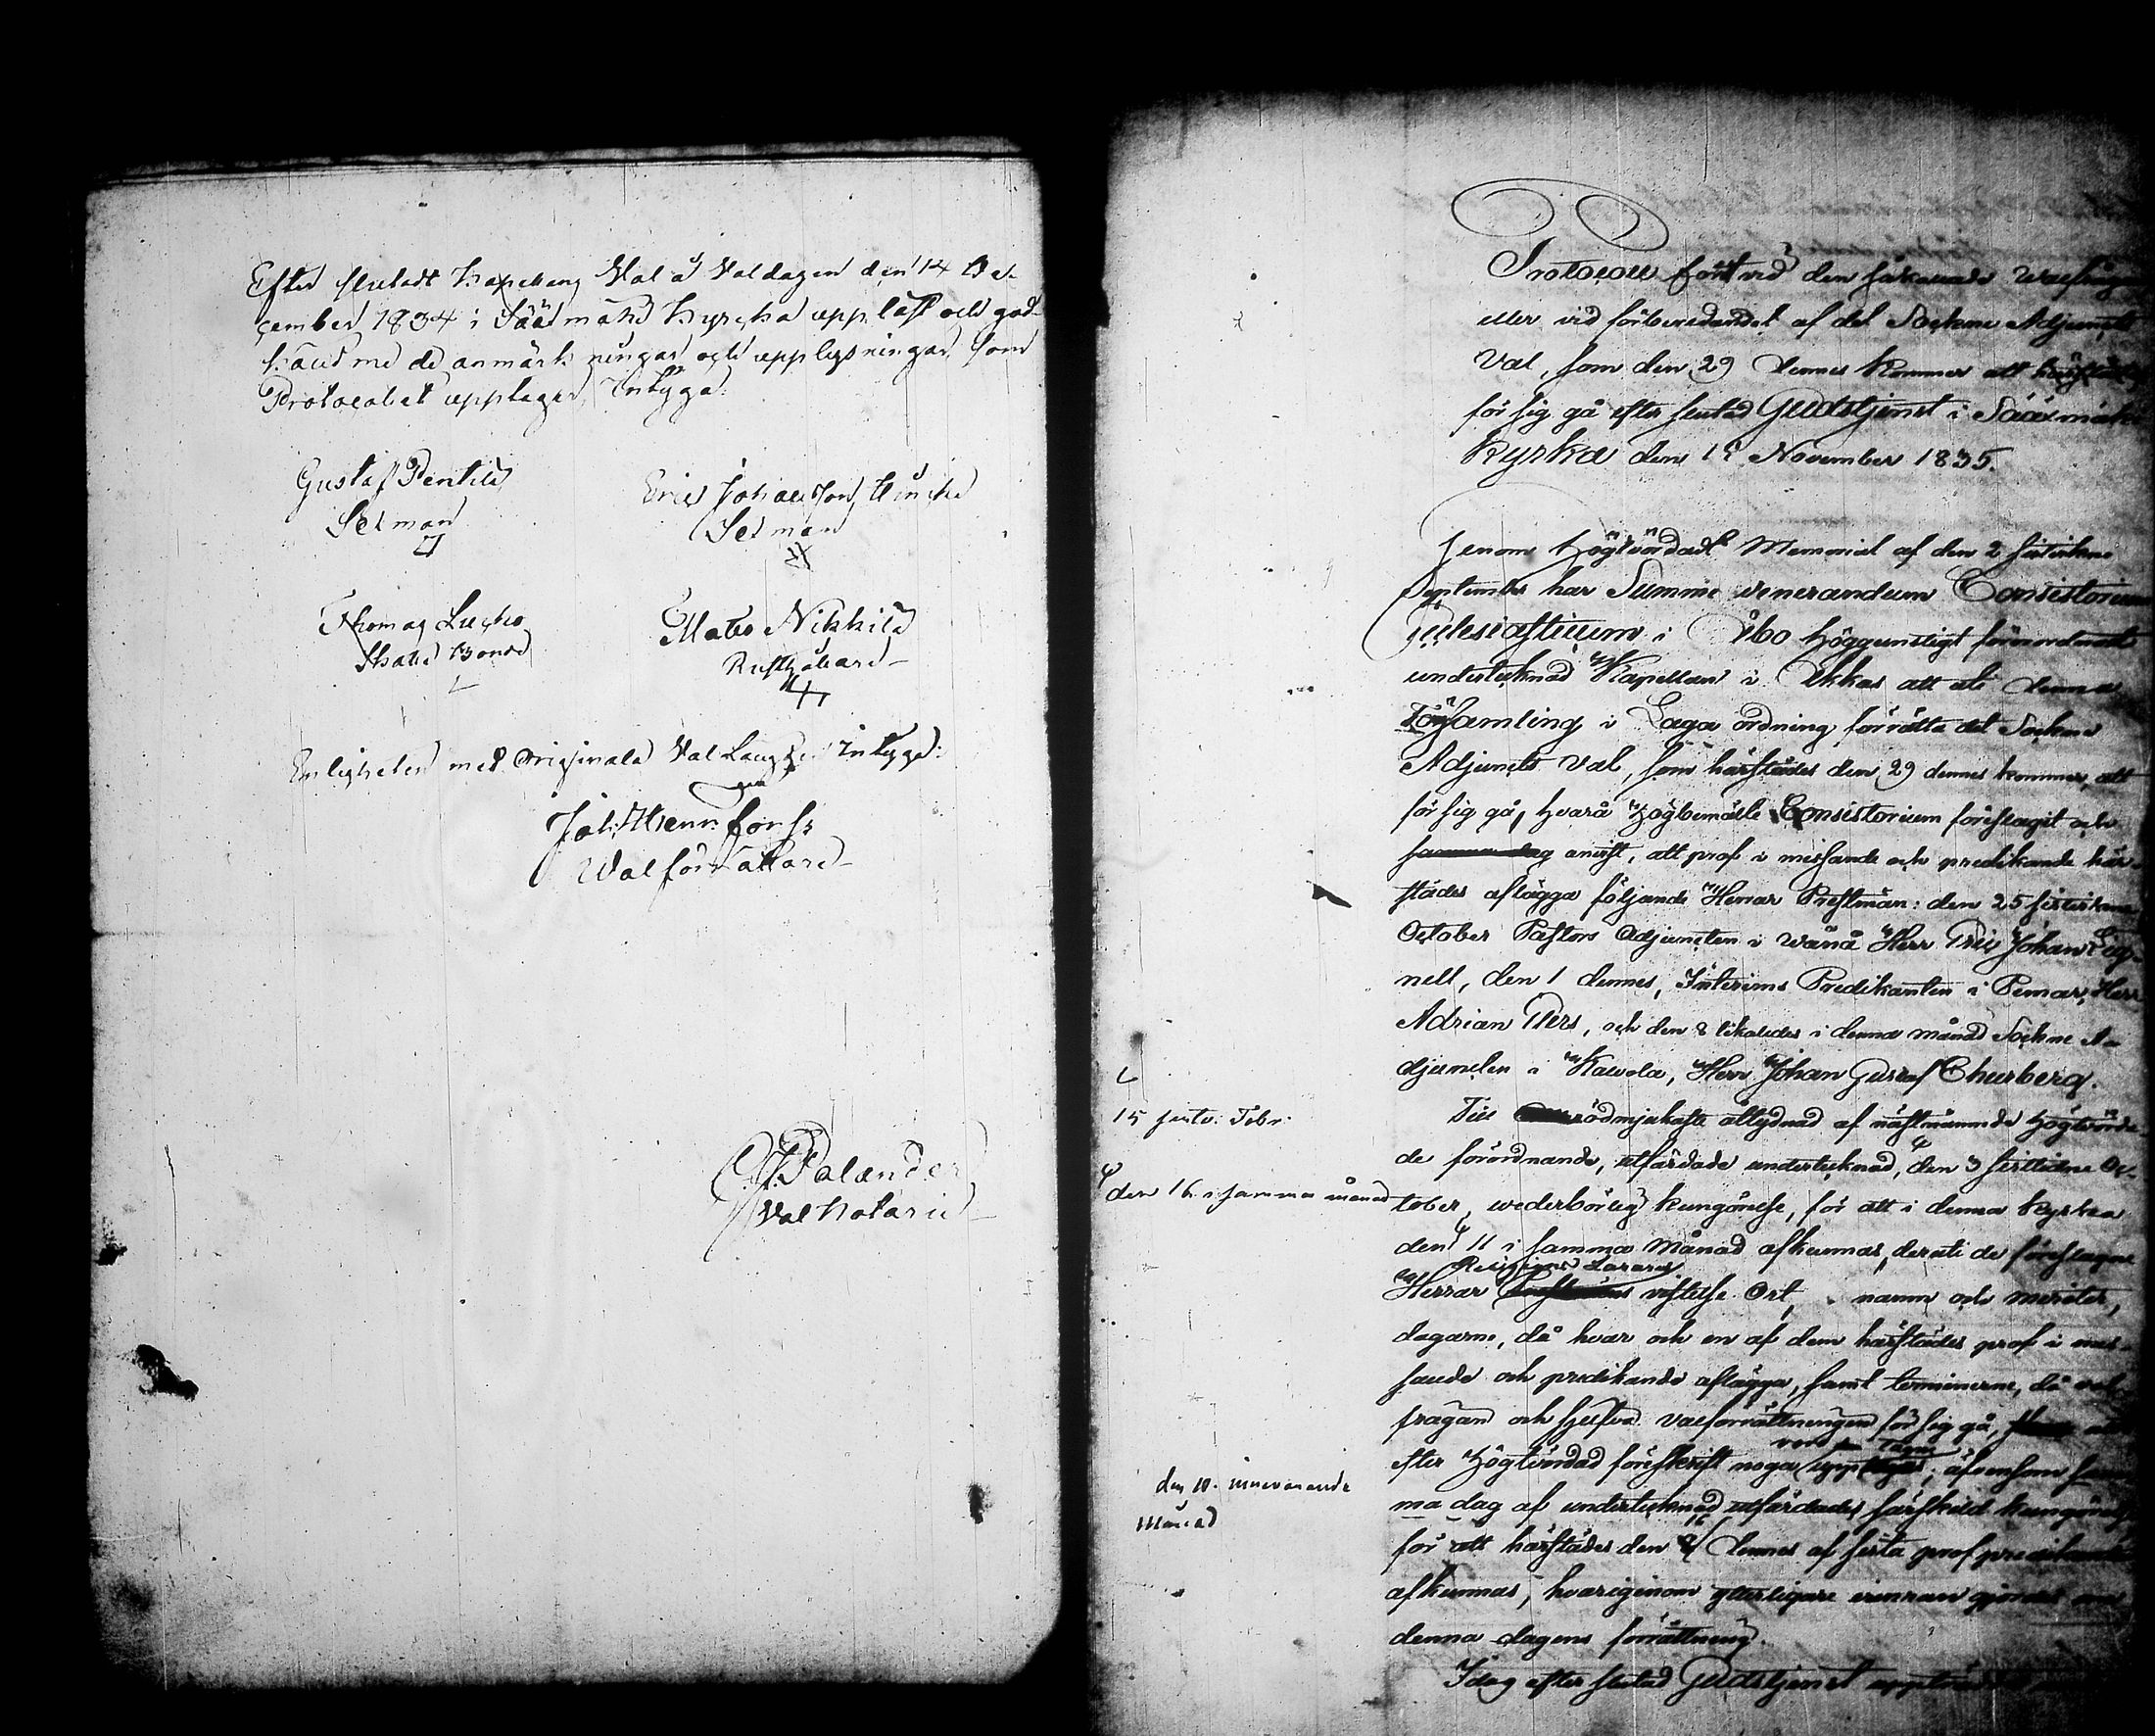 Efter slutadt Kapellans Val å Valdagen den 14 De-
cember 1834 i Sääxmäki Kyrcka uppläst och god-
känd med de anmärkningar och upplysningar, som
Protocollet upptager, Intyga:
Gustaf Pentild
Sexman
Eric Johansson
Sexman
Thomas
Skatte Bonde
Mats Nikkilä
Rusthållare
Enligheten med Originala Val Längden Intyga:
Joh. Henr. Forss
Walförrättare
Palander
Val Notarie
Protocoll fört vid den såkallade Walfrågan
eller vid förberedandet af det Sockne Adjuncts
Val, som den 29 dennes kommer att härstädes
för sig gå efter slutad Gudstjenst i Sääxmäki
Kyrka den 15 November 1835.
Genom Högvördadt Memorial af den 2 sistvikne
September har Summe venerandum Consistorium
Ecclesiasticum i Åbo Höggunstigt förordnat
undertecknad Kapellan i Akkas att uti denna
Församling i Laga ordning förrätta det Sockne
Adjuncts Val, som härstädes den 29 dennes kommer att
för sig gå, hvarå Högbemälte Consistorium föreslagit och
anvist, att prof i messande och predikande här-
städes aflägga följande Herrar Prestmän: den 25 sistvikne
October Pastors Adjuncten i Wånå Herr Eric Johan Eg-
nell, den 1 dennes, Interims Predikanten i Pemar, Herr
Adrian Pers, och den 8 likaledes i denna månad Sockne A-
djuncten i Kauvola, Herr Johan Gustaf Churberg.
15 sistv. 8br.
Till ödmjukaste åtlydnad af nästnämnde Högvörda-
de förordnande, utfärdade undertecknad, den 3 sistlidne Oc-
den 16 i samma månad
tober, wederbörlig kungörelse, för att i denna kyrka
den 11 i samma Månad afkunnas, deruti de föreslagne
Religions Lärares
Herrar vistelse Ort, namn och meriter,
dagarne, då hvar och en af dem härstädes prof i mes-
sande och predikande aflägga, samt terminerne, då val-
frågan och sjelfva valförrättningen för sig gå,
efter Högvördad föreskrift noga upp; äfvensom sam-
den 10. innevarande
Månad
ma dag af undertecknad utfärdades särskild kungörelse
för att härstädes den 8 dennes af sista profpredikanten
afkunnas, hvarigenom ytterligare erinran gjordes om
denna dagens förrättning.
Idag efter slutad Gudstjenst